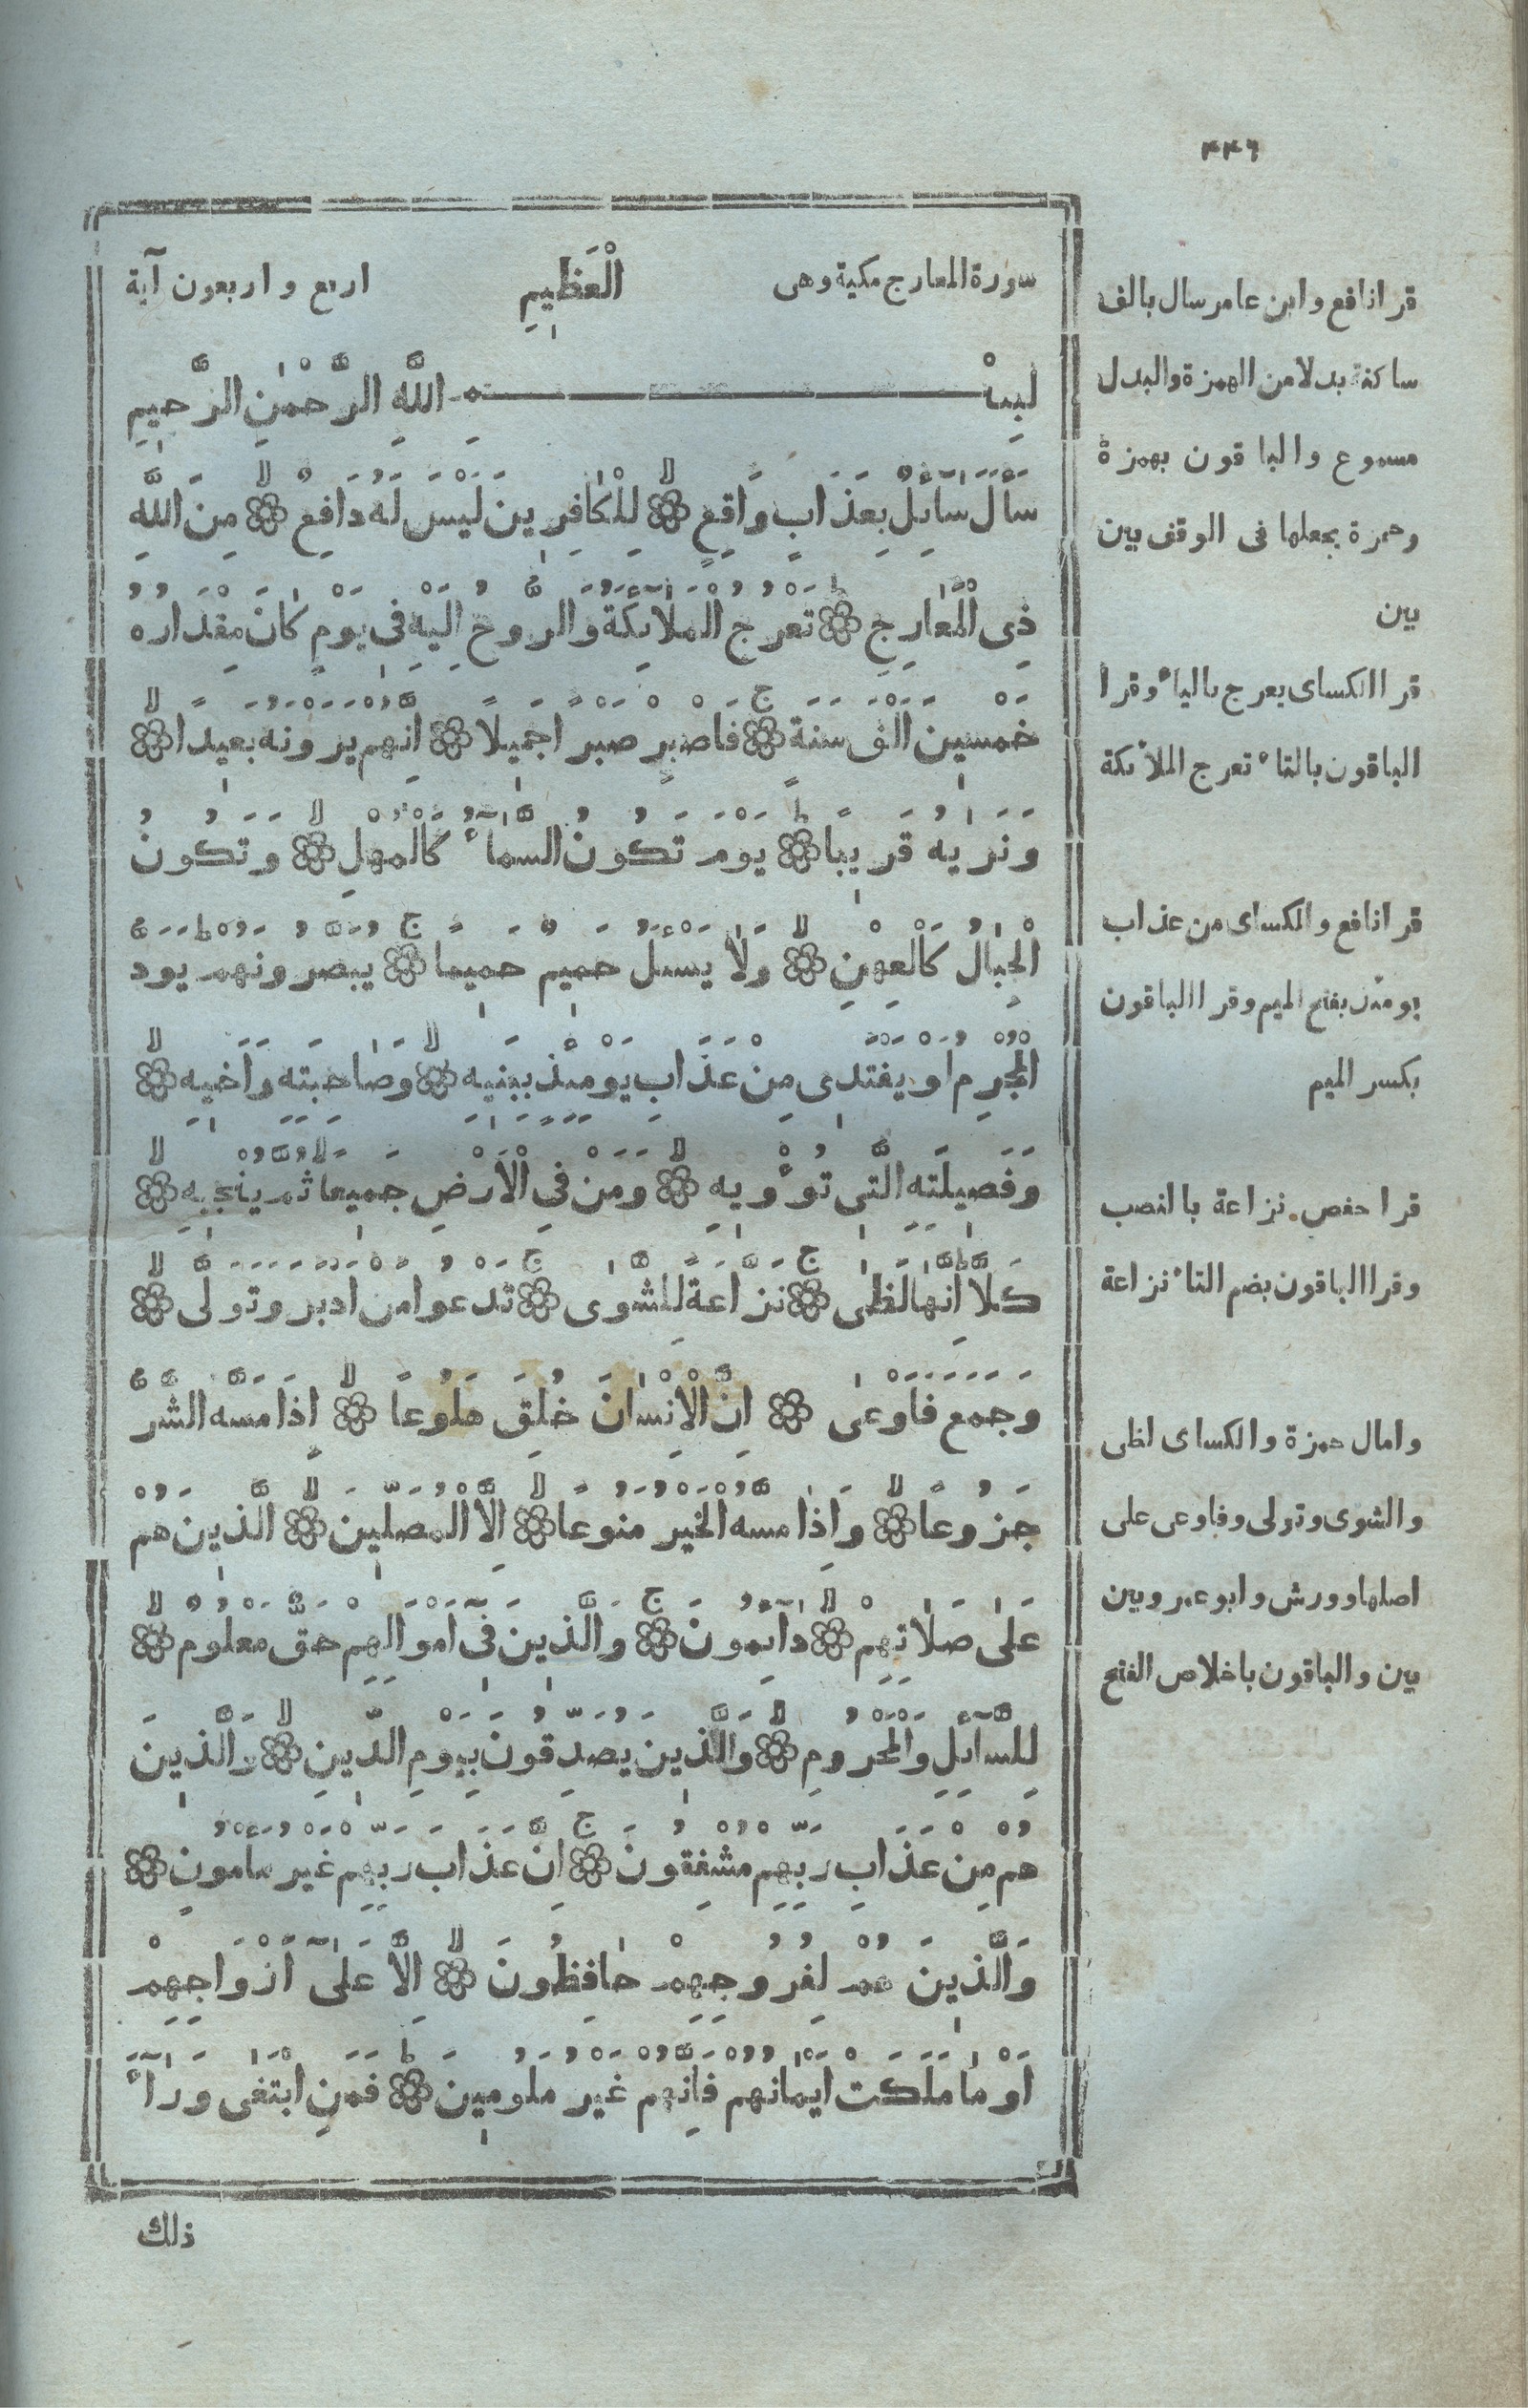 ٤٤٦
سورة المعارج مكية وهى الْعَظيمِ اربع واربعون آية
بسْمِ اللَّهِ الرَّحْمٰنِ الرَّحيمِ
سَأَلَ سَآئِلٌ بِعَذَابٍ وَاقِعٍ ۙ لِلْكٰافِرينَ لَيْسَ لَهُ دَافِعٌ ۙ مِنَ اللَّهِ
ذِى الْمَعٰارِجِ ۗ تَعْرُجُ الْمَلآئِكَةُ وَالرُّوحُ اِلَيْهِ فى يَوْمٍ كٰانَ مِقْدَارُهُ
خَمْسينَ اَلْفَ سَنَةٍ ۚ فَاصْبِرْ صَبْرًا جَميلًا اِنَّهُمْ يَرَوْنَهُ بَعيدًا ۙ
وَنَرٰيهُ قَريبًا ۗ يَوْمَ تَكُونُ السَّمٰآءُ كَالْمُهْلِ ۙ وَتَكُونُ
الْجِبٰالُ كَالْعِهْنِ ۙ وَلٰا يَسْئَلُ حَميمٌ حَميمًا ۚ يُبَصَّرُونَهُمْ يَوَدُّ
الْمُجْرِمُ لَوْ يَفْتَدى مِنْ عَذَابِ يَوْمِئِذٍ بِبَنيهِ ۙ وَصٰاحِبَتِهِ وَاَخيهِ ۙ
وَفَصيلَتِهِ الَّتى تُؤْويهِ ۙ وَمَنْ فِى الْاَرْضِ جَميعًا ثُمَّ يُنْجيهِ ۙ
كَلَّا اِنَّهَا لَظٰى ۚ نَزَّاعَةً لِلشَّوٰى ۚ تَدْعُوا مَنْ اَدْبَرَ وَتَوَلّٰى ۙ
وَجَمَعَ فَاَوْعٰى اِنَّ الْاِنْسٰانَ خُلِقَ هَلُوعًا ۙ اِذَا مَسَّهُ الشَّرُّ
جَزُوعًا ۙ وَاِذٰا مَسَّهُ الْخَيْرُ مَنُوعًا ۙ اِلَّا الْمُصَلّينَ ۙ الَّذينَ هُمْ
عَلٰى صَلَاتِهِمْ ۙ دٰآئِمُونَ ۚ وَالَّذينَ فىٓ اَمْوَالِهِمْ حَقٌّ مَعْلُومٌ ۙ
لِلسَّآئِلِ وَالْمَحْرُومِ ۙ وَالَّذينَ يُصَدِّقُونَ بِيَوْمِ الدّينِ ۙ وَالَّذينَ
هُمْ مِنْ عَذَابِ رَبِّهِمْ مُشْفِقُونَ ۚ اِنَّ عَذَابَ رَبِّهِمْ غَيْرُ مَأْمُونٍ
وَالَّذينَ هُمْ لِفُرُوجِهِمْ حٰافِظُونَ ۙ اِلَّا عَلٰىٓ اَزْوَاجِهِمْ
اَوْ مٰا مَلَكَتْ اَيْمٰانُهُمْ فَاِنَّهُمْ غَيْرُ مَلُومينَ ۗ فَمَنِ ابْتَغٰى وَرٰآءَ
ذلك
قرا نافع وابن عامر سال بالف
ساكنة بدلا من الهمزة والبدل
مسموع والباقون بهمزة
وحمزة يجعلها فى الوقف بين
بين
قرا الكساى يعرج بالياء وقرا
الباقون بالتاء تعرج الملائكة
قرا نافع والكساى من عذاب
يومئذ بفتح الميم وقرا الباقون
بكسر الميم
قرا حفص نزاعة بالنصب
وقرا الباقون بضم التاء نزاعة
وامال حمزة والكساى لظى
والشوى وتولى وفاوعى على
اصلها وورش وابو عمرو بين
بين والباقون باخلاص الفتح